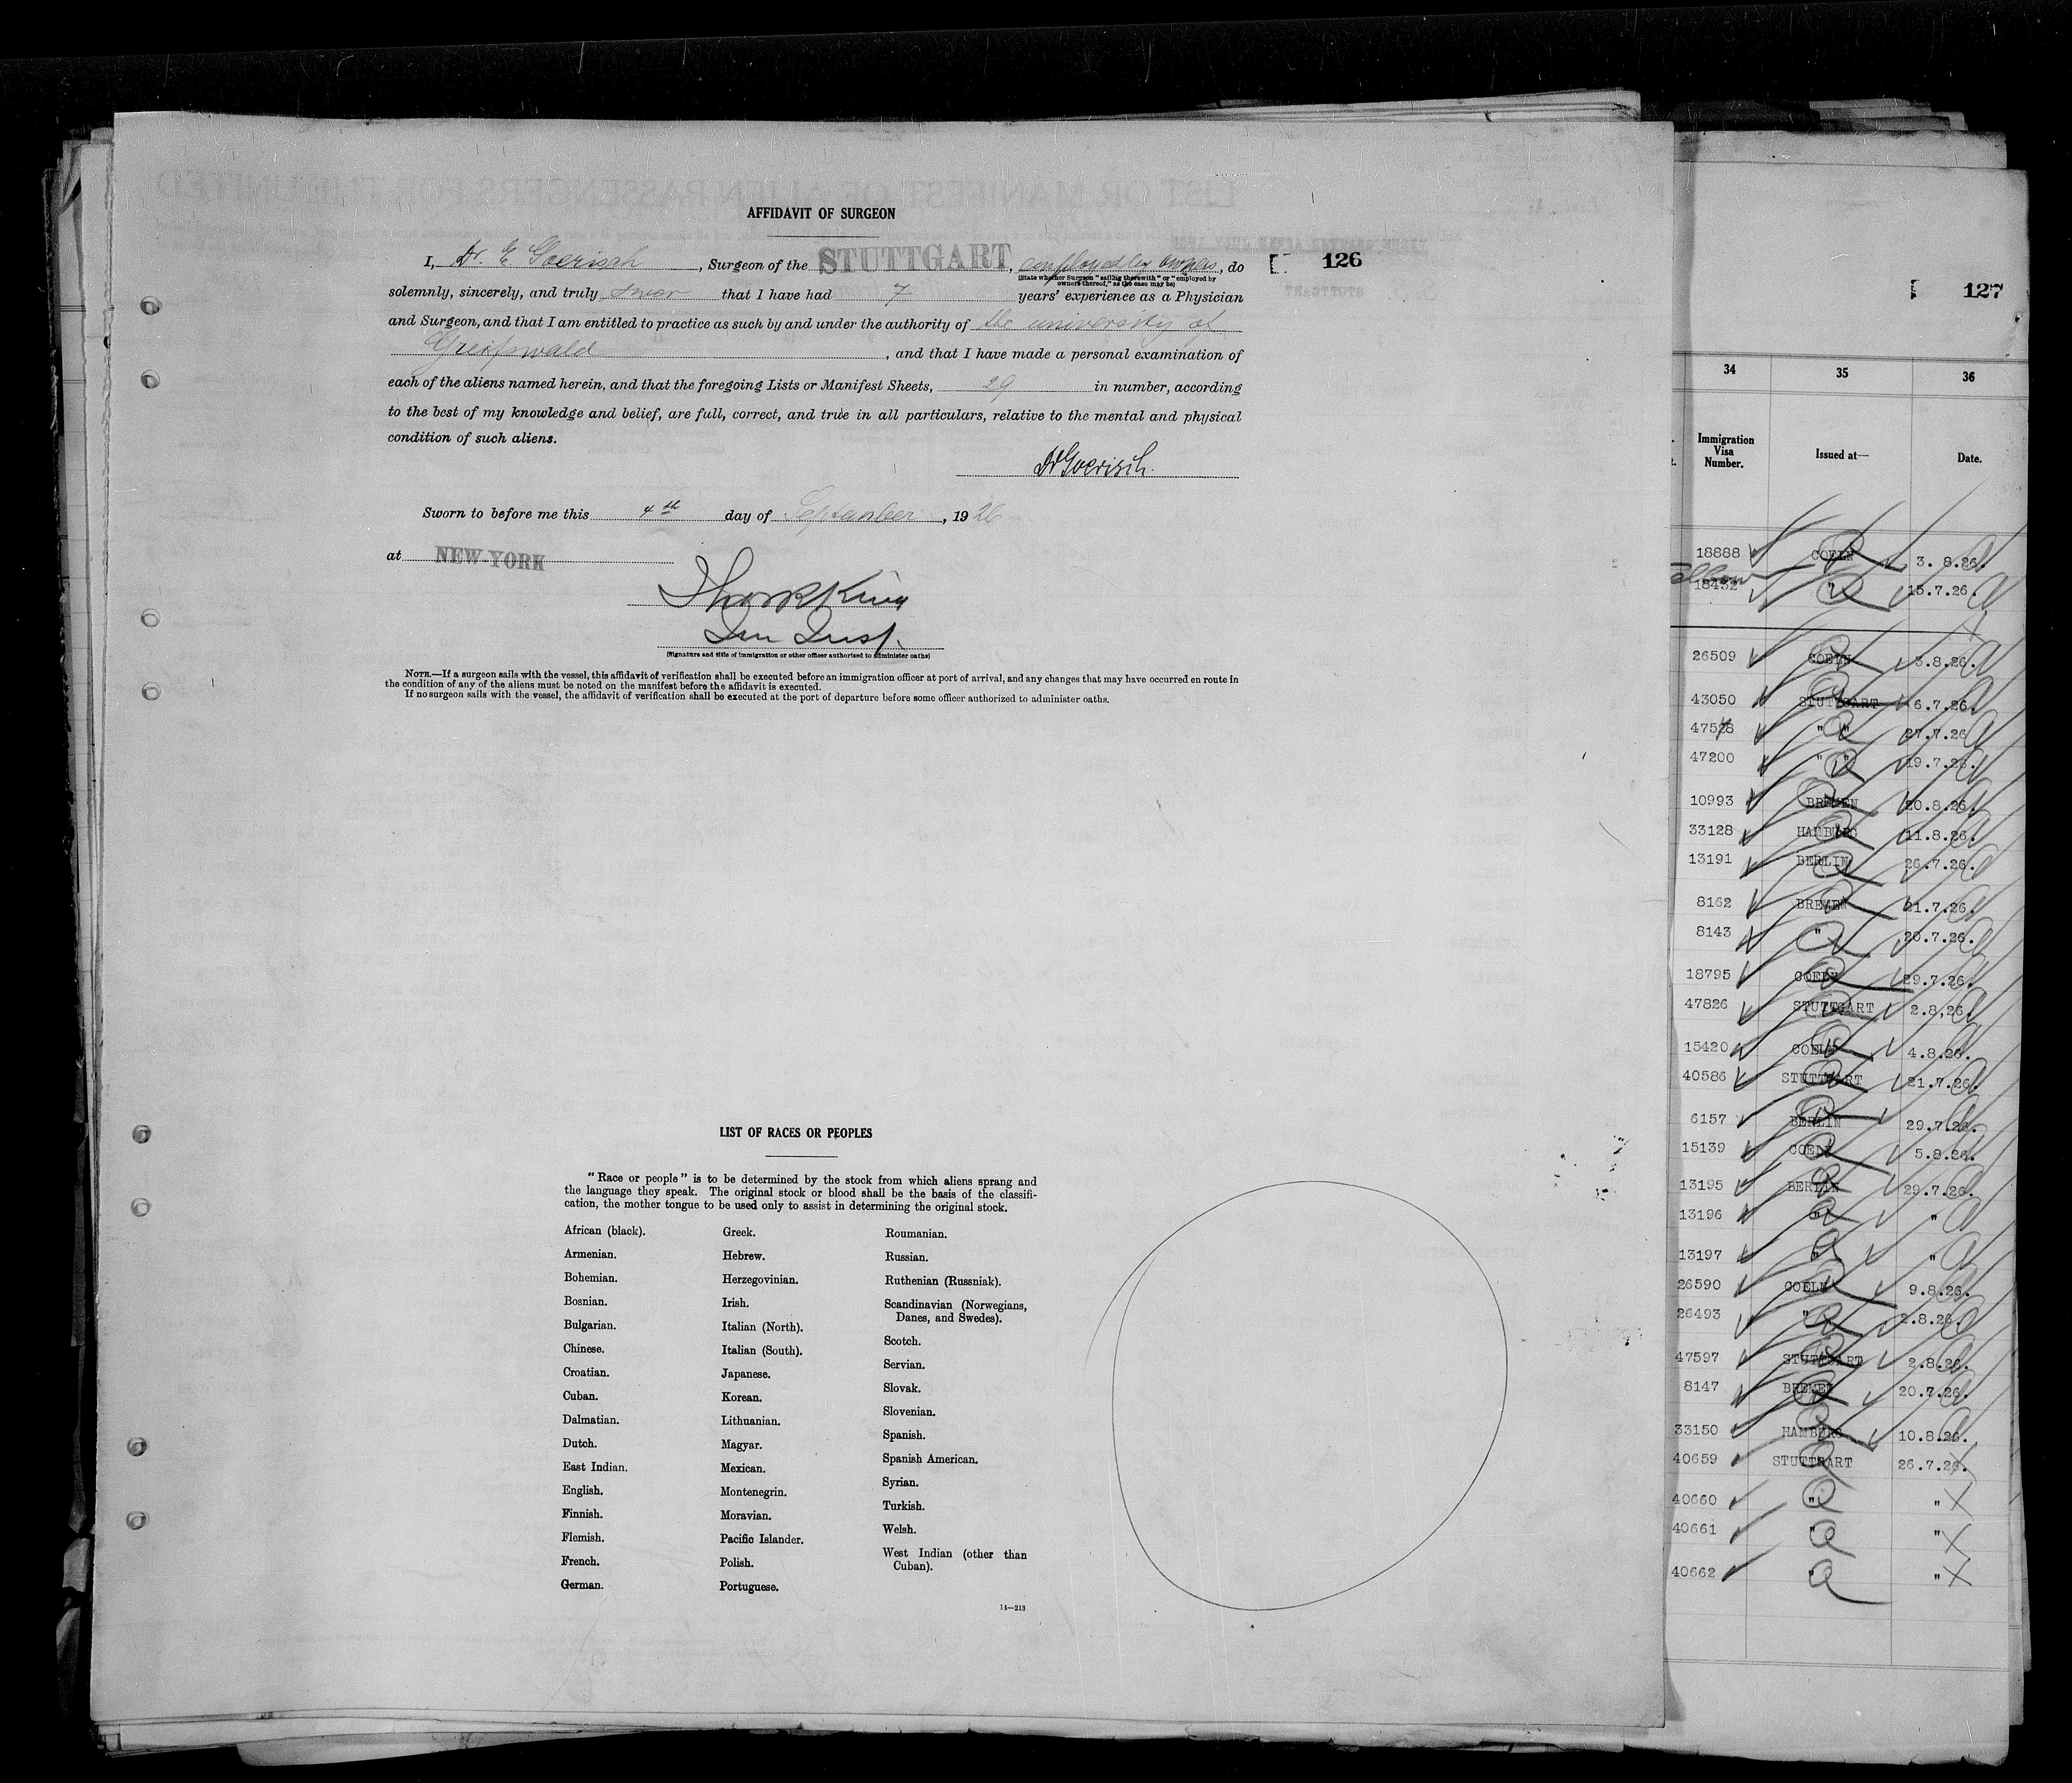 AFFIDAVIT OF SURGEON
I, Dr. E. Goerisch, Surgeon of the STUTTGART, employed by owners, do
(State whether Surgeon "sailing therewith" or "employed by
owners thereof," as the case may be)
solemnly, sincerely, and truly swor that I have had 7 years' experience as a Physician
and Surgeon, and that I am entitled to practice as such by and under the authority of the university of
Greifswald, and that I have made a personal examination of
each of the aliens named herein, and that the foregoing Lists or Manifest Sheets, 29 in number, according
to the best of my knowledge and belief, are full, correct, and true in all particulars, relative to the mental and physical
condition of such aliens.
Dr Goerisch.
Sworn to before me this 4th day of September, 1926
at NEW-YORK
Imm Insp.
(Signature and title of immigration or other officer authorized to administer oaths)
NOTE.—If a surgeon sails with the vessel, this affidavit of verification shall be executed before an immigration officer at port of arrival, and any changes that may have occurred en route in
the condition of any of the aliens must be noted on the manifest before the affidavit is executed.
If no surgeon sails with the vessel, the affidavit of verification shall be executed at the port of departure before some officer authorized to administer oaths.
126
LIST OF RACES OR PEOPLES
"Race or people" is to be determined by the stock from which aliens sprang and
the language they speak. The original stock or blood shall be the basis of the classifi-
cation, the mother tongue to be used only to assist in determining the original stock.
African (black).
Armenian.
Bohemian.
Bosnian.
Bulgarian.
Chinese.
Croatian.
Cuban.
Dalmatian.
Dutch.
East Indian.
English.
Finnish.
Flemish.
French.
German.
Greek.
Hebrew.
Herzegovinian.
Irish.
Italian (North).
Italian (South).
Japanese.
Korean.
Lithuanian.
Magyar.
Mexican.
Montenegrin.
Moravian.
Pacific Islander.
Polish.
Portuguese.
Roumanian.
Russian.
Ruthenian (Russniak).
Scandinavian (Norwegians,
Danes, and Swedes).
Scotch.
Servian.
Slovak.
Slovenian.
Spanish.
Spanish American.
Syrian.
Turkish.
Welsh.
West Indian (other than
Cuban).
14—213
127
34 35 36
Immigration
Visa
Number.
Issued at—
Date.
18888 COELN 3.8.26.
18432 " 15.7.26.
26509 COELN 3.8.26.
43050 STUTTGART 6.7.26.
" " 27.7.26
47200 " " 19.7.26.
10993 BREMEN 20.8.26.
33128 HAMBURG 11.8.26.
13191 BERLIN 26.7.26.
8162 BREMEN 21.7.26.
8143 " 20.7.26.
18795 COELN 29.7.26.
47826 STUTTGART 2.8.26.
15420 COELN 4.8.26.
40586 STUTTGART 21.7.26.
6157 BERLIN 29.7.26.
15139 COELN 5.8.26.
13195 BERLIN 29.7.26.
13196 " "
13197 " "
26590 COELN 9.8.26.
26493 " 2.8.26.
47597 STUTTGART 2.8.26.
8147 BREMEN 20.7.26.
33150 HAMBURG 10.8.26.
40659 STUTTGART 26.7.26.
40660 " "
40661 " "
40662 " "